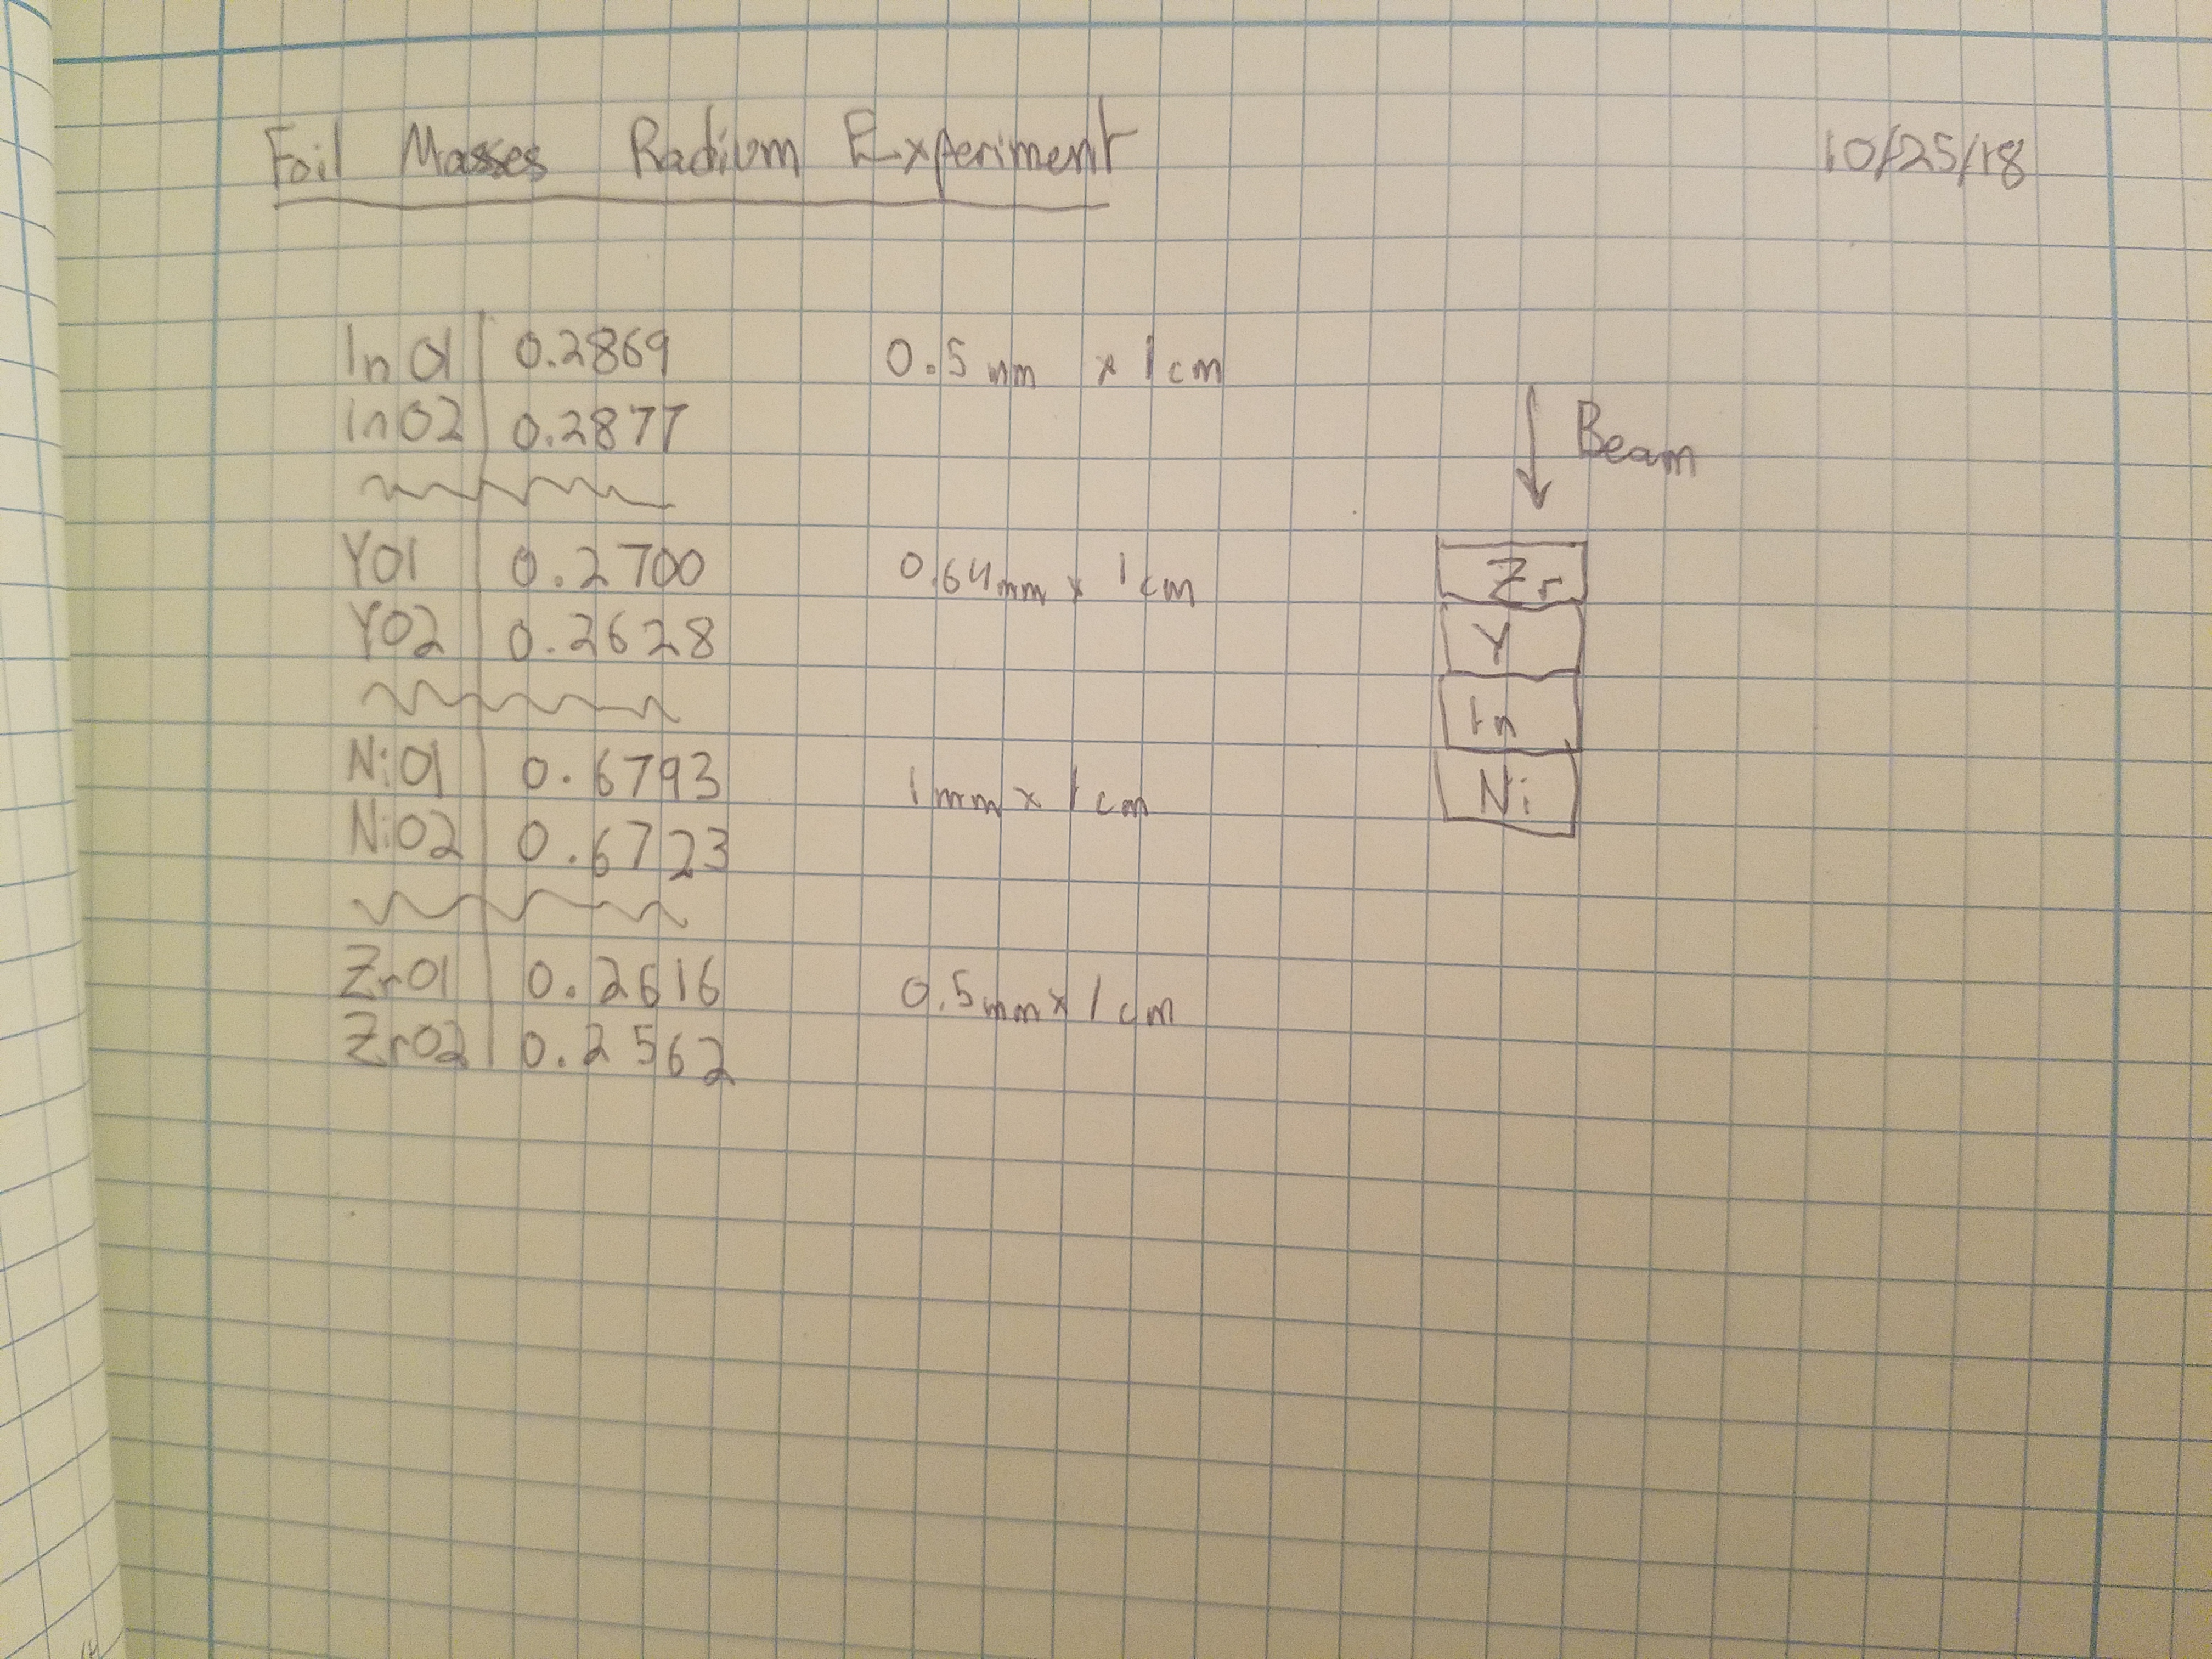 Foil Masses Radium Experiment 10/25/18
In01 0.2869 0.5 mm x 1 cm
In02 0.2877
Beam
Y01 0.2700 0.64mm x 1 cm
Zr
Y02 0.2628
Y
In
Ni01 0.6793 1mm x 1 cm
Ni
Ni02 0.6723
Zr01 0.2616 0.5mm x 1 cm
Zr02 0.2562